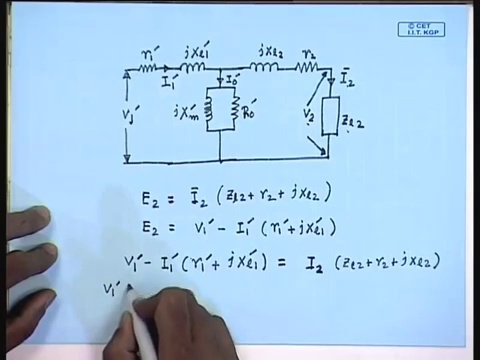 © CET
I.I.T. KGP
r₁′ jx′ₗ₁ jxₗ₂ r₂
I₁′ I₀′ Ī₂
V₁′ jX′ₘ R₀′ V₂ Zₗ₂
E₂ = Ī₂ (Zₗ₂ + r₂ + jxₗ₂)
E₂ = V₁′ − I₁′ (r₁′ + jx′ₗ₁)
V₁′ − I₁′ (r₁′ + jx′ₗ₁) = I₂ (Zₗ₂ + r₂ + jxₗ₂)
V₁′